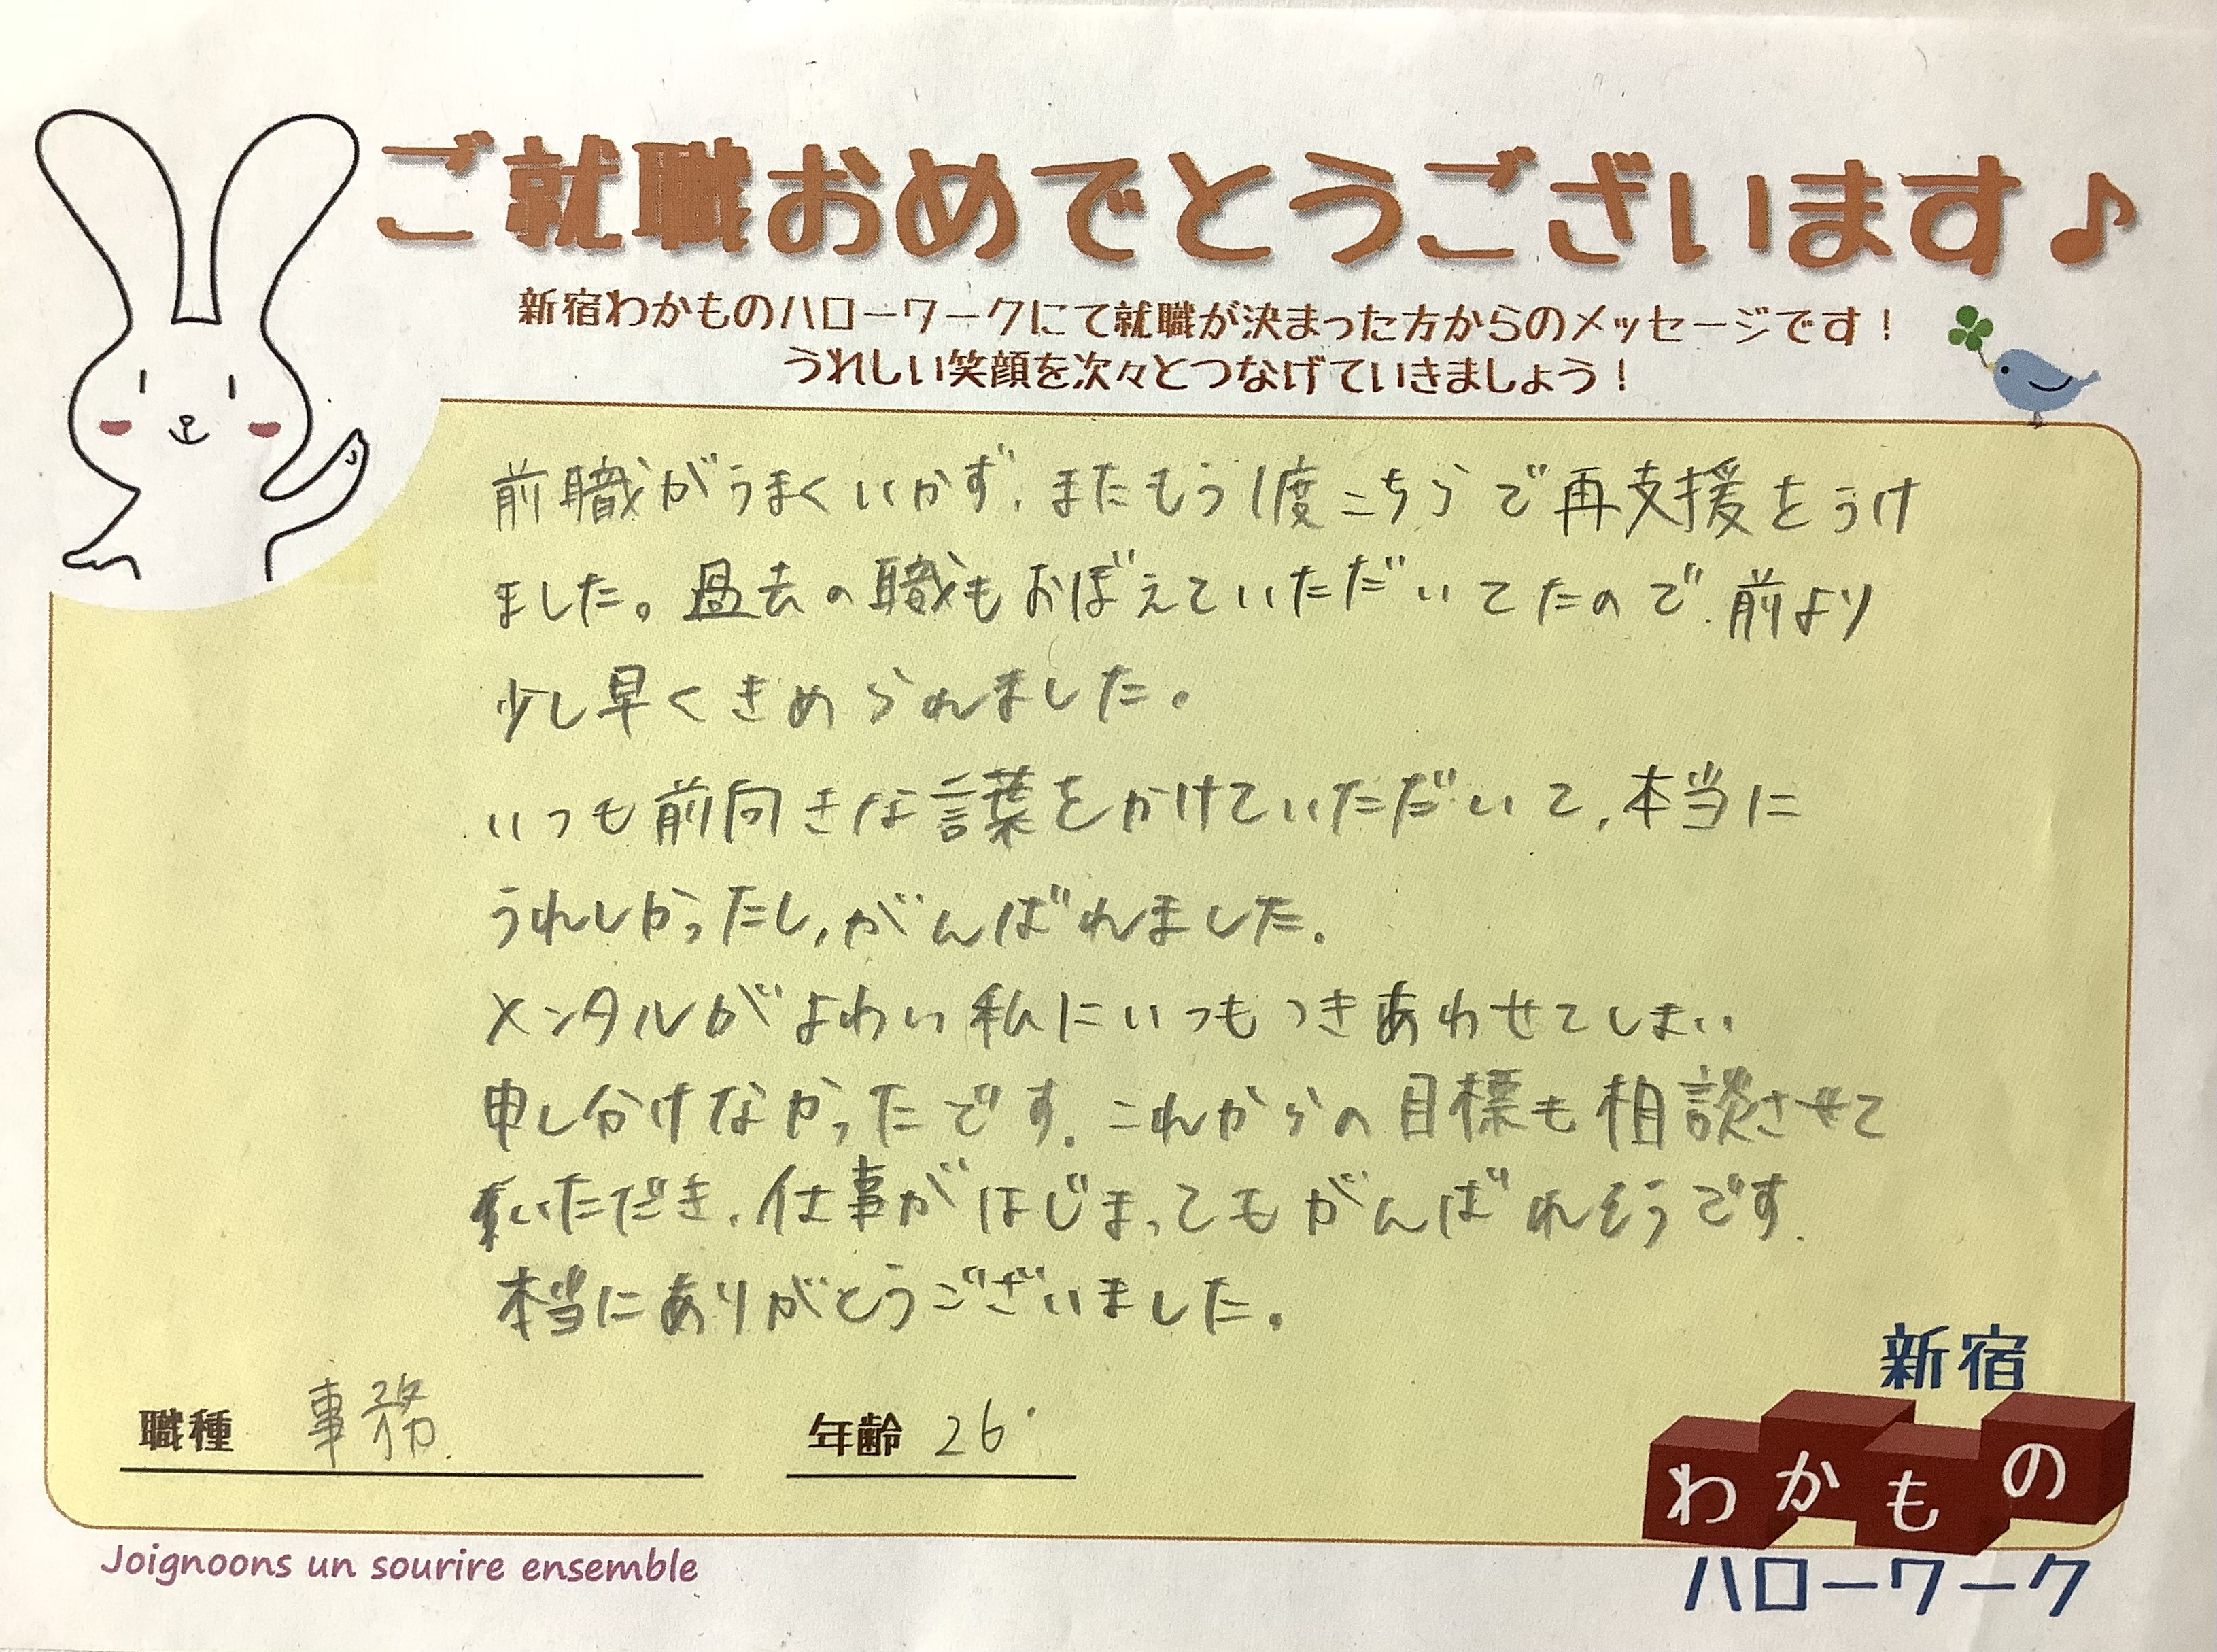 ご就職おめでとうございます♪
新宿わかものハローワークにて就職が決まった方からのメッセージです！
うれしい笑顔を次々とつなげていきましょう！
前職がうまくいかず、またもう1度こちらで再支援をうけ
ました。過去の職もおぼえていただいてたので、前より
少し早くきめられました。
いつも前向きな言葉をかけていただいて、本当に
うれしかったし、がんばれました。
メンタルがよわい私にいつもつきあわせてしまい
申し分けなかったです。これからの目標も相談させて
いただき、仕事がはじまってもがんばれそうです。
本当にありがとうございました。
職種 事務
年齢 26
新宿
わかもの
ハローワーク
Joignoons un sourire ensemble